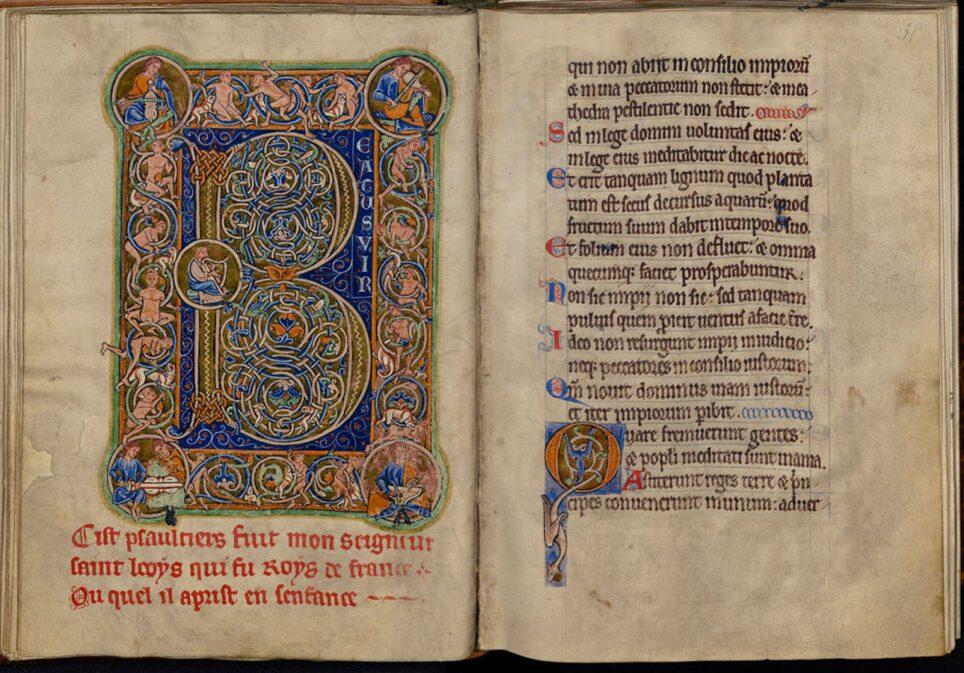 BEATUS VIR
Cist psaultiers fuit mon seigneur
saint looys qui fu Roys de france
Ou quel il aprist en senfance
31
qui non abijt in consilio impiorū
& in uia peccatorum non stetit: & in ca-
thedra pestilentie non sedit.
Sed in lege domini uoluntas eius: &
in lege eius meditabitur die ac nocte.
Et erit tanquam lignum quod planta
tum est secus decursus aquarū: quod
fructum suum dabit in tempore suo.
Et folium eius non defluet: & omnia
quecumq; faciet prosperabuntur.
Non sic impij non sic: sed tanquam
puluis quem proicit uentus a facie t̄re.
Ideo non resurgunt impij in iudicio:
neq; peccatores in consilio iustorum.
Qm̄ nouit dominus uiam iustorū:
et iter impiorum pibit.
Quare fremuerunt gentes:
& popli meditati sunt inania.
Astiterunt reges terre & prin-
cipes conuenerunt in unum: aduer